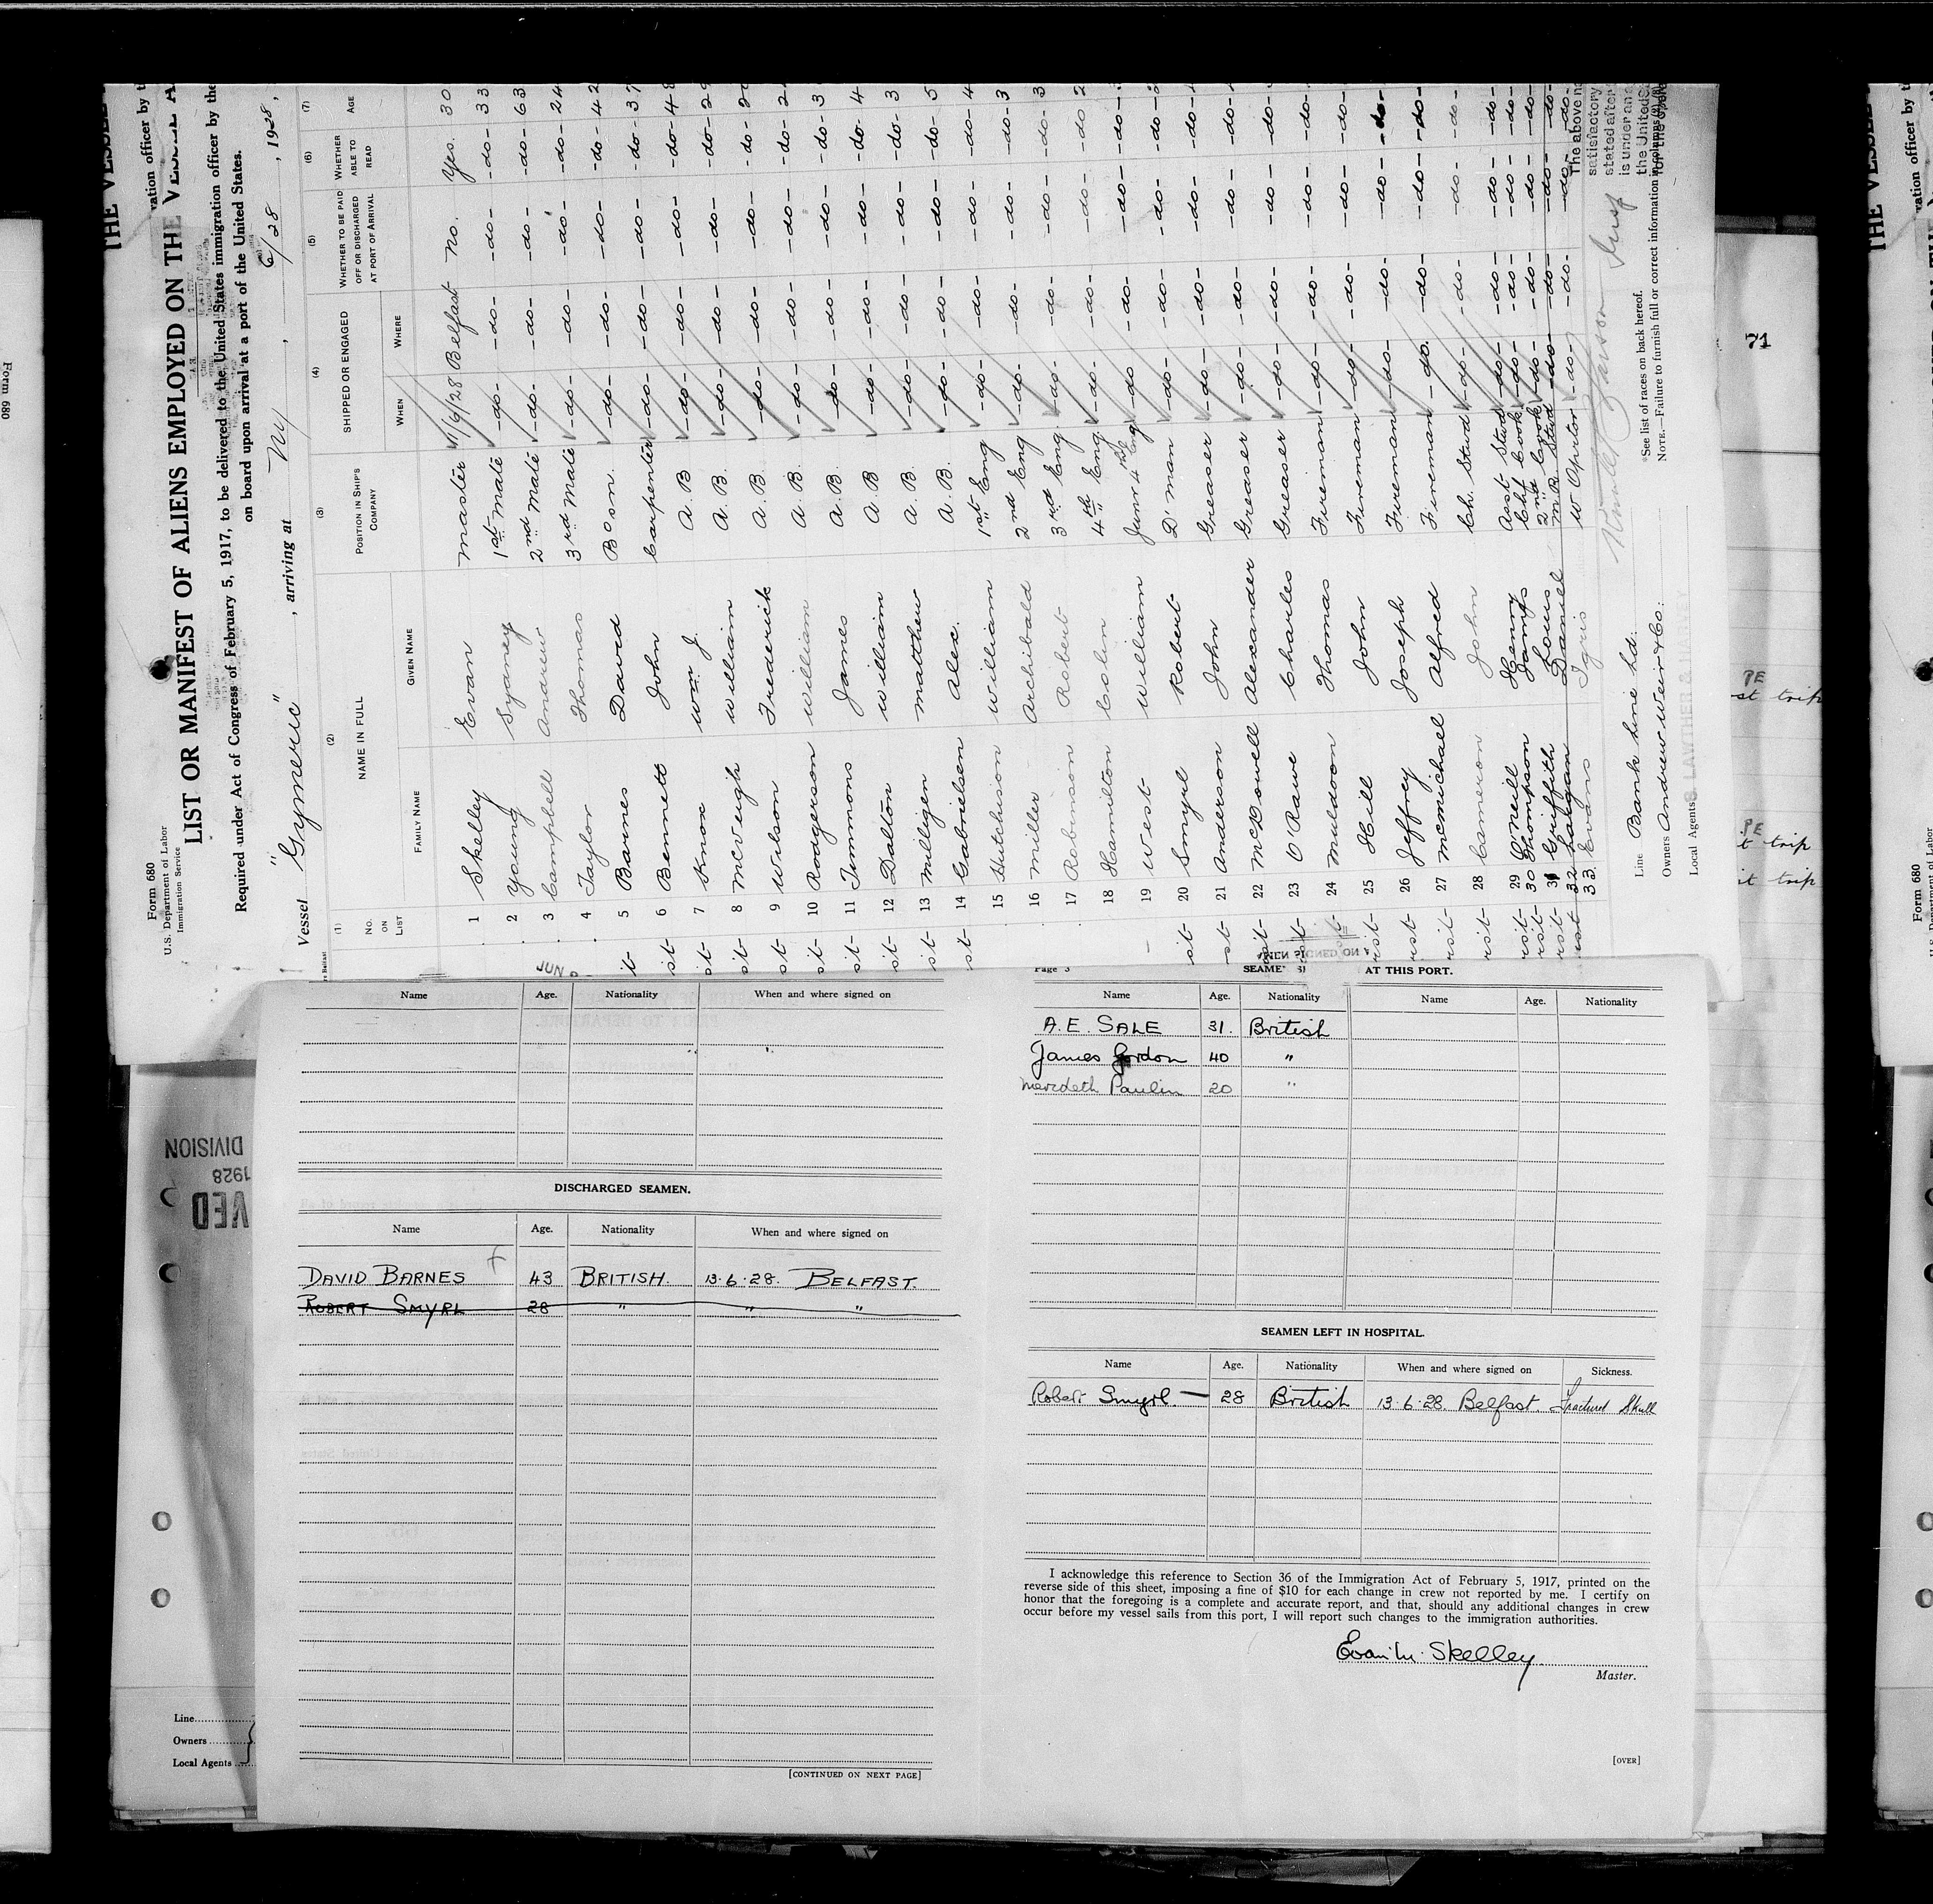 Form 680
U.S. Department of Labor
Immigration Service
LIST OR MANIFEST OF ALIENS EMPLOYED ON THE VESSEL A
Required under Act of Congress of February 5, 1917, to be delivered to the United States immigration officer by the
on board upon arrival at a port of the United States.
Vessel "Gymeric", arriving at NY, 6/28, 1928,
(1) (2) (3) (4) (5) (6) (7)
No. ON LIST NAME IN FULL POSITION IN SHIP'S COMPANY SHIPPED OR ENGAGED WHETHER TO BE PAID OFF OR DISCHARGED AT PORT OF ARRIVAL WHETHER ABLE TO READ AGE
FAMILY NAME GIVEN NAME WHEN WHERE
1 Skelley Evan Master Belfast No. Yes. 30
2 Young Sydney 1st Mate -do- -do- -do- -do- 33
3 Campbell Andrew 2nd Mate -do- -do- -do- -do- 63
4 Taylor Thomas 3rd Mate -do- -do- -do- -do- 24
5 Barnes David Bosn. -do- -do- -do- -do- 42
6 Bennett John Carpenter -do- -do- -do- -do- 37
7 Knox Wm J. A.B -do- -do- -do- -do- 48
8 McVeigh William A.B. -do- -do- -do- -do-
9 Wilson Frederick A.B. -do- -do- -do- -do-
10 Rodgerson William A.B. -do- -do- -do- -do-
11 Timmons James A.B. -do- -do- -do- -do-
12 Dalton William A.B -do- -do- -do- -do-
13 Milligen Matthew A.B. -do- -do- -do- -do-
14 Gabrielsen Alex. A.B. -do- -do- -do- -do-
15 Hutchison William 1st Eng -do- -do- -do- -do-
16 Miller Archibald 2nd Eng -do- -do- -do- -do-
17 Robinson Robert 3rd Eng. -do- -do- -do- -do-
18 Hamilton Colin 4th Eng. -do- -do- -do- -do-
19 West William Junr 4th Eng -do- -do- -do- -do-
20 Smyrl Robert D'man -do- -do- -do- -do-
21 Anderson John Greaser -do- -do- -do- -do-
22 McDowell Alexander Greaser -do- -do- -do- -do-
23 O'Rawe Charles Greaser -do- -do- -do- -do-
24 Muldoon Thomas Fireman -do- -do- -do- -do-
25 Hill John Fireman -do- -do- -do- -do-
26 Jeffrey Joseph Fireman -do- -do- -do- -do-
27 McMichael Alfred Fireman -do- -do- -do- -do-
28 Cameron John Ch. Stwd -do- -do- -do- -do-
29 O'Neill Henry Asst Stwd -do- -do- -do- -do-
30 Thompson James Chf Cook -do- -do- -do- -do-
31 Griffith Louis 2nd Cook -do- -do- -do- -do-
32 Daniel M.R. Stwd -do- -do- -do- -do-
33 Evans W Optor -do- -do- -do- -do-
Line Bank Line Ltd.
Owners Andrew Weir & Co.
Local Agents
*See list of races on back hereof.
NOTE.—Failure to furnish full or correct information in columns
The above na
satisfactory
stated after
is under an
the United S
for the
Name Age. Nationality When and where signed on
DISCHARGED SEAMEN.
Name Age. Nationality When and where signed on
DAVID BARNES 43 BRITISH. 13.6.28. BELFAST.
ROBERT SMYRL 28 " " "
[CONTINUED ON NEXT PAGE]
Page 3
SEAMEN SIGNED ON AT THIS PORT.
Name Age. Nationality Name Age. Nationality
A.E. SALE 31. British
James Gordon 40 "
Meredeth Paulin 20 "
SEAMEN LEFT IN HOSPITAL.
Name Age. Nationality When and where signed on Sickness.
Robert Smyrl 28 British 13.6.28. Belfast. Fractured Skull
I acknowledge this reference to Section 36 of the Immigration Act of February 5, 1917, printed on the
reverse side of this sheet, imposing a fine of $10 for each change in crew not reported by me. I certify on
honor that the foregoing is a complete and accurate report, and that, should any additional changes in crew
occur before my vessel sails from this port, I will report such changes to the immigration authorities.
Evan M. Skelley
Master.
[OVER]
Line
Owners
Local Agents
DIVISION
1928
VED
Form 680
71
PE
st trip
PE
t trip
it trip
Form 680
U.S. Department of Labor